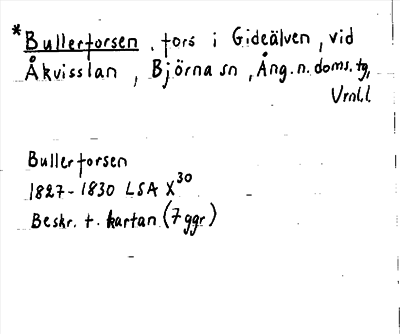 *Bullerforsen, fors i Gideälven, vid
Åkvisslan, Björna sn, Ång. n. doms. tg,
Vrnl.l.
Bullerforsen
1827-1830 LSA X30
Beskr. t. kartan (7 ggr)